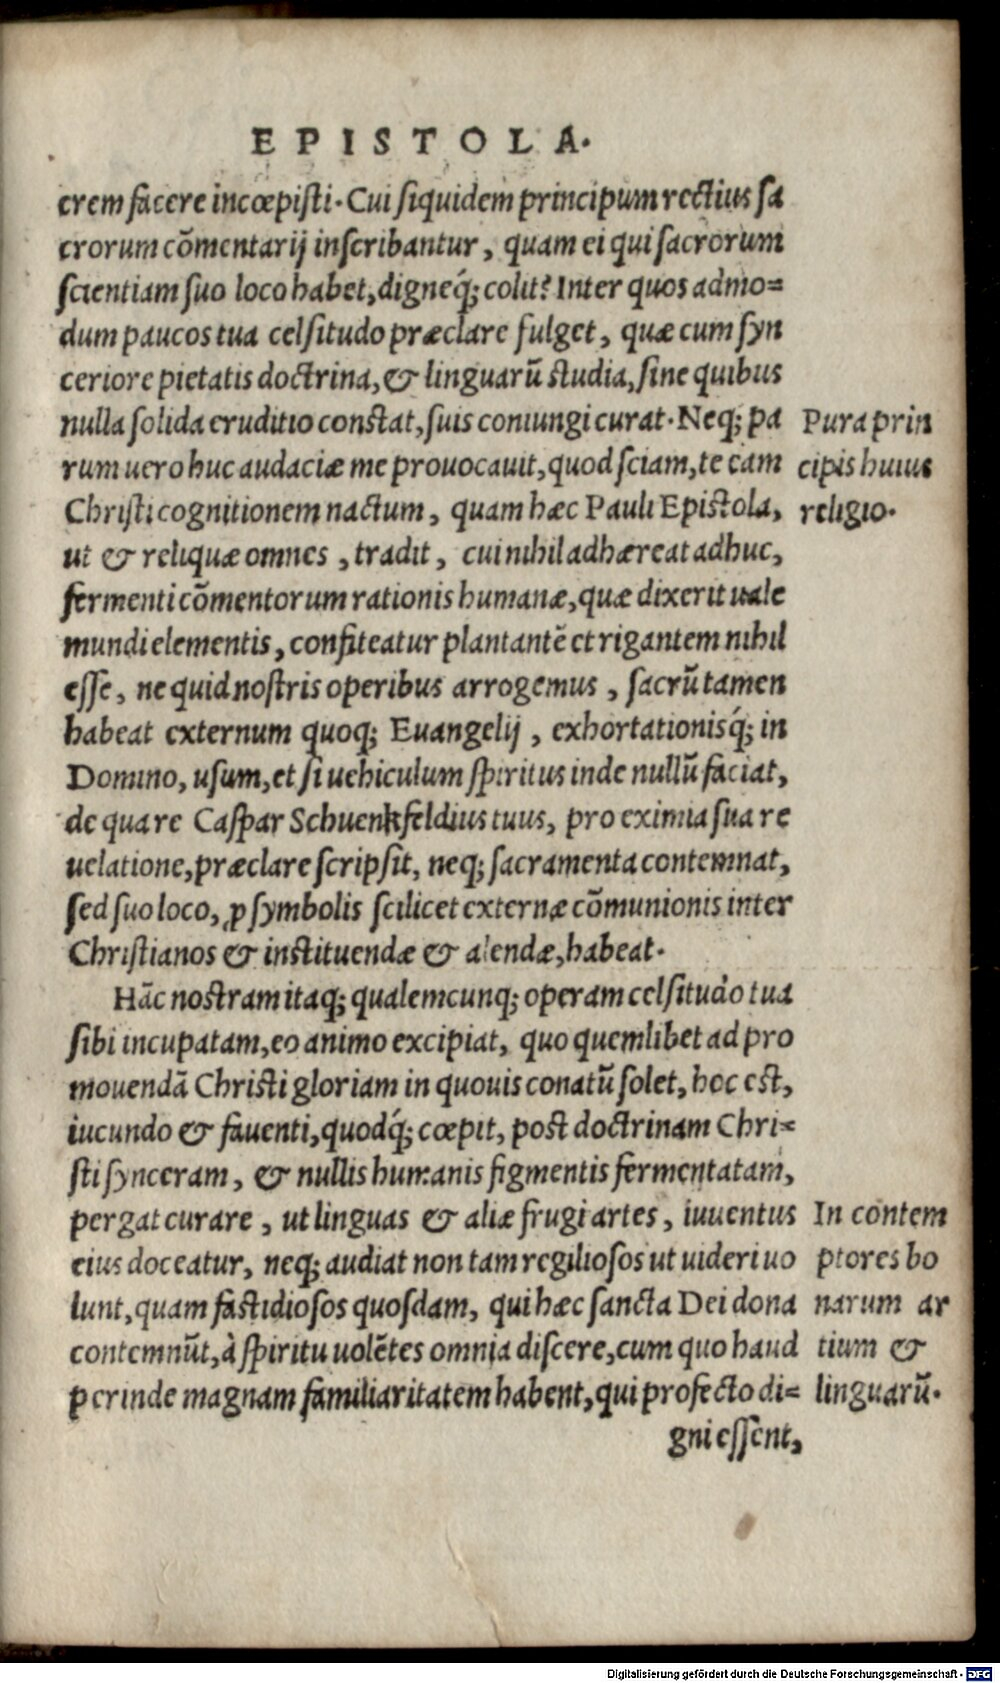 EPISTOLA.
erem facere incœpisti. Cui siquidem principum rectius sa
crorum cõmentarij inscribantur, quam ei qui sacrorum
scientiam suo loco habet, digneq́; colit? Inter quos admo=
dum paucos tua celsitudo præclare fulget, quæ cum syn
ceriore pietatis doctrina, & linguarũ studia, sine quibus
nulla solida eruditio constat, suis coniungi curat. Neq; pa
rum uero huc audaciæ me prouocauit, quod sciam, te eam
Christi cognitionem nactum, quam hæc Pauli Epistola,
ut & reliquæ omnes, tradit, cui nihil adhæreat adhuc,
fermenti cõmentorum rationis humanæ, quæ dixerit uale
mundi elementis, confiteatur plantantẽ et rigantem nihil
esse, ne quid nostris operibus arrogemus, sacrũ tamen
habeat externum quoq; Euangelij, exhortationisq́; in
Domino, usum, et si uehiculum spiritus inde nullũ faciat,
de qua re Caspar Schuenkfeldius tuus, pro eximia sua re
uelatione, præclare scripsit, neq; sacramenta contemnat,
sed suo loco, ꝓ symbolis scilicet externæ cõmunionis inter
Christianos & instituendæ & alendæ, habeat.
Hãc nostram itaq; qualemcunq; operam celsitudo tua
sibi incupatam, eo animo excipiat, quo quemlibet ad pro
mouendã Christi gloriam in quouis conatũ solet, hoc est,
iucundo & fauenti, quodq́; cœpit, post doctrinam Chri=
sti synceram, & nullis humanis figmentis fermentatam,
pergat curare, ut linguas & aliæ frugi artes, iuuentus
eius doceatur, neq; audiat non tam regiliosos ut uideri uo
lunt, quam fastidiosos quosdam, qui hæc sancta Dei dona
contemnũt, à spiritu uolẽtes omnia discere, cum quo haud
perinde magnam familiaritatem habent, qui profecto di=
gni essent,
Pura prin
cipis huius
religio.
In contem
ptores bo
narum ar
tium &
linguarũ.
Digitalisierung gefördert durch die Deutsche Forschungsgemeinschaft - DFG